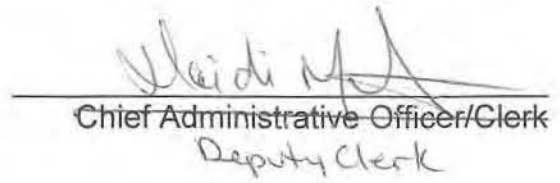 Chief Administrative Officer/Clerk
Deputy Clerk